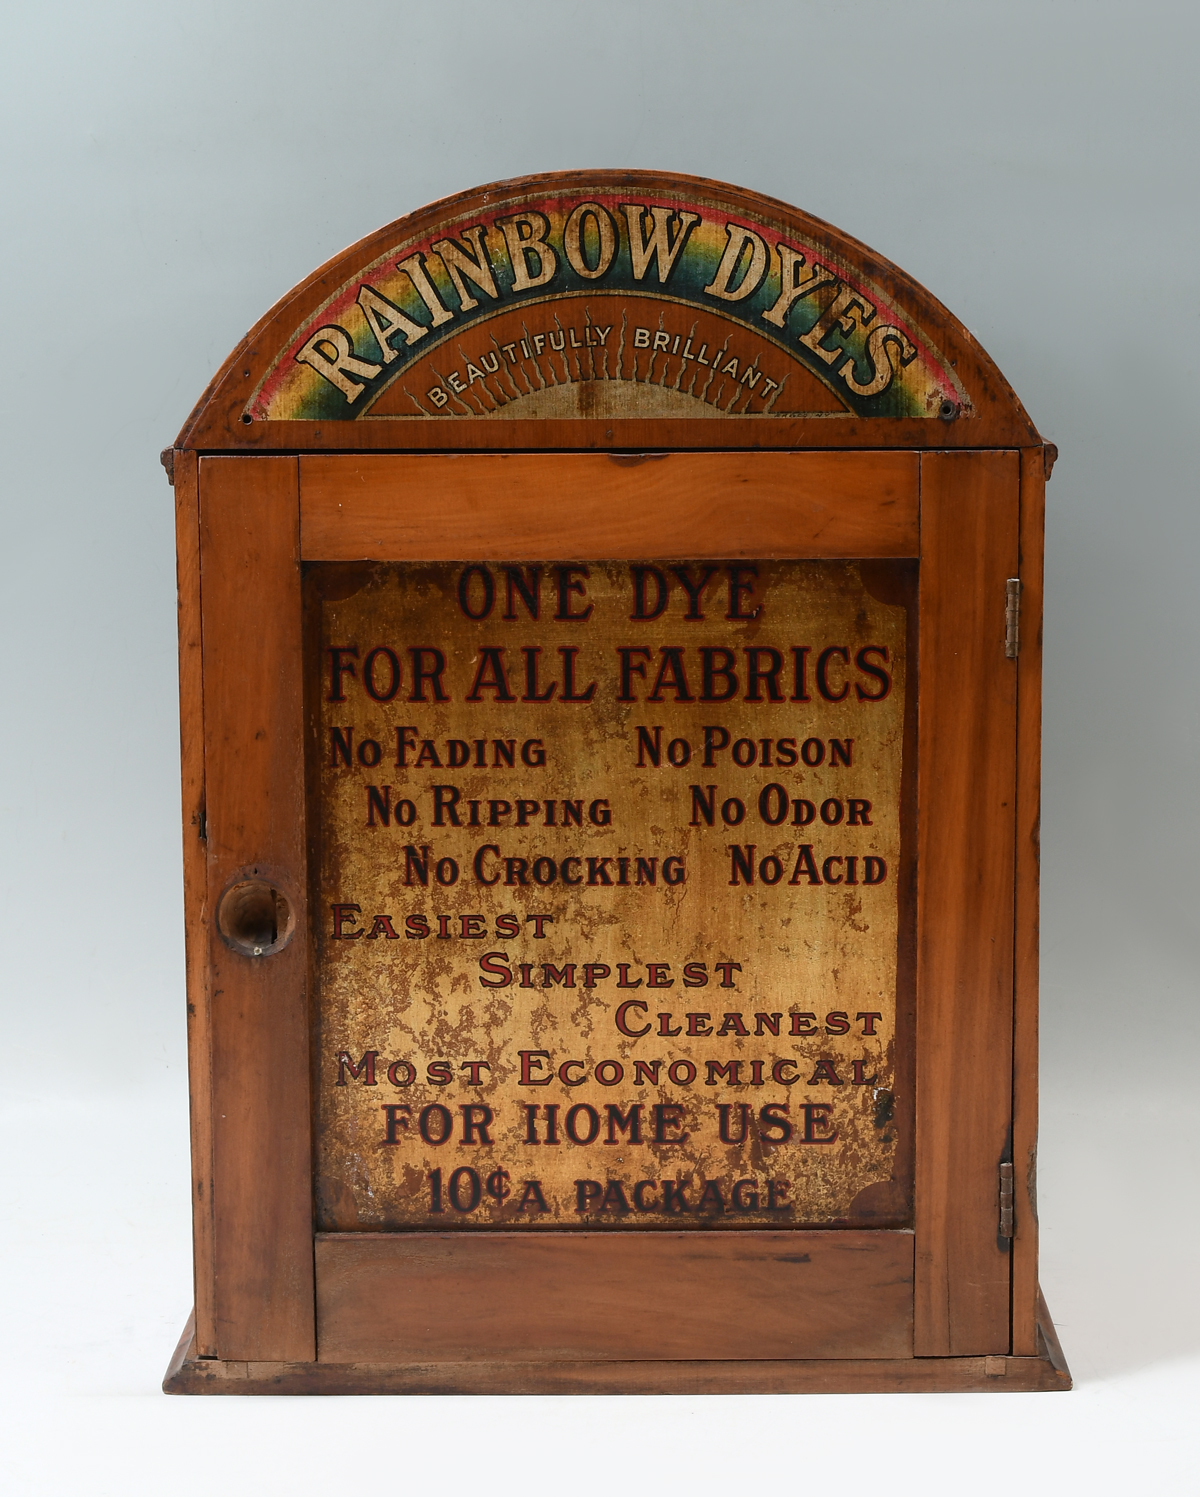 RAINBOW DYES
BEAUTIFULLY BRILLIANT
ONE DYE
FOR ALL FABRICS
NO FADING NO POISON
NO RIPPING NO ODOR
NO CROCKING NO ACID
EASIEST
SIMPLEST
CLEANEST
MOST ECONOMICAL
FOR HOME USE
10¢ A PACKAGE